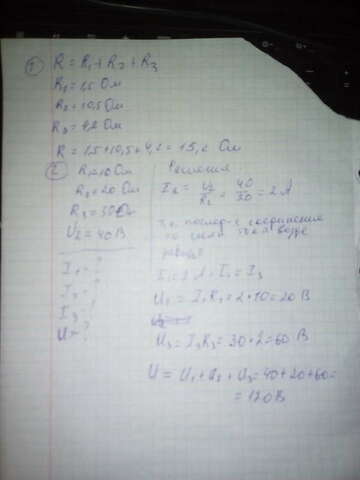 1) R = R1 + R2 + R3
R1 = 1,5 Ом
R2 = 10,5 Ом
R3 = 4,2 Ом
R = 1,5 + 10,5 + 4,2 = 15,2 Ом
2) R1 = 10 Ом
R2 = 20 Ом
R3 = 30 Ом
U2 = 40 В
I1 - ?
I2 - ?
I3 - ?
U - ?
Решение
I2 = U2/R2 = 40/30 = 2 А
т.к. послед-е соединение
то сила тока везде
равна
I2 = 2 А = I1 = I3
U1 = I1R1 = 2 * 10 = 20 В
U3 = I3R3 = 30 * 2 = 60 В
U = U1 + U2 + U3 = 40 + 20 + 60 =
= 120 В